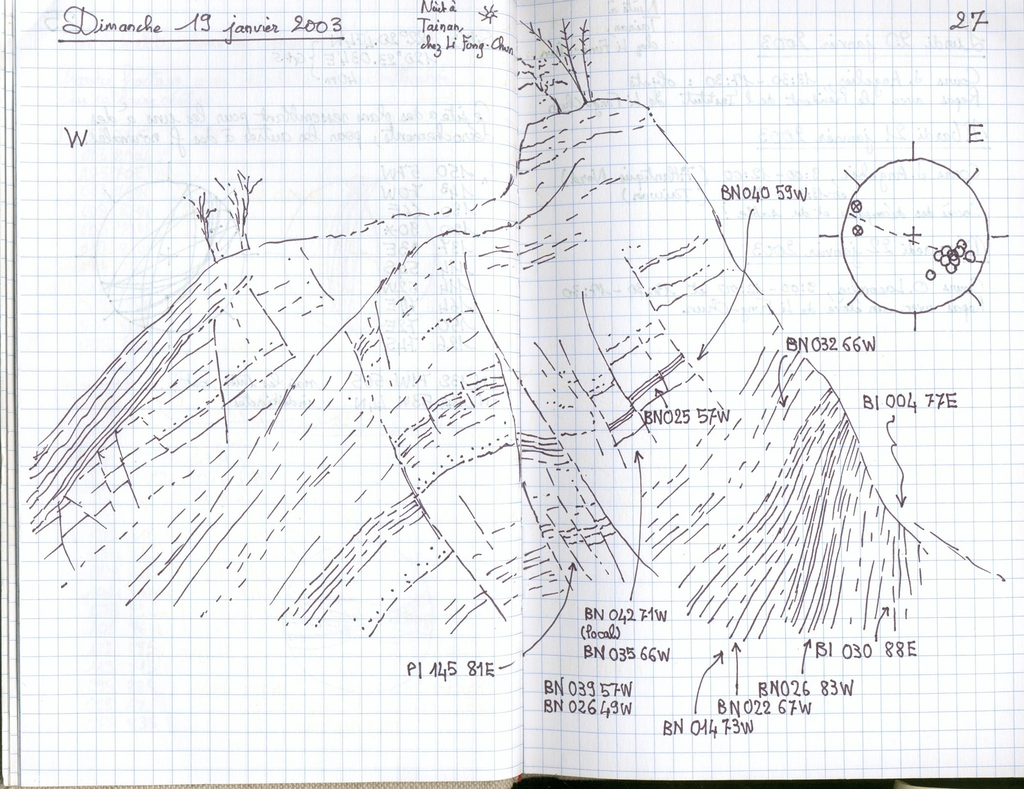 Dimanche 19 janvier 2003
Nuit à
Tainan,
chez Li Fong-Chun
27
W
E
BN040 59W
BN032 66W
BI 004 77E
BN025 57W
BN 042 71W
(local)
BN 035 66W
PI 145 81E
BI 030 88E
BN 039 57W
BN 026 49W
BN026 83W
BN022 67W
BN 014 73W